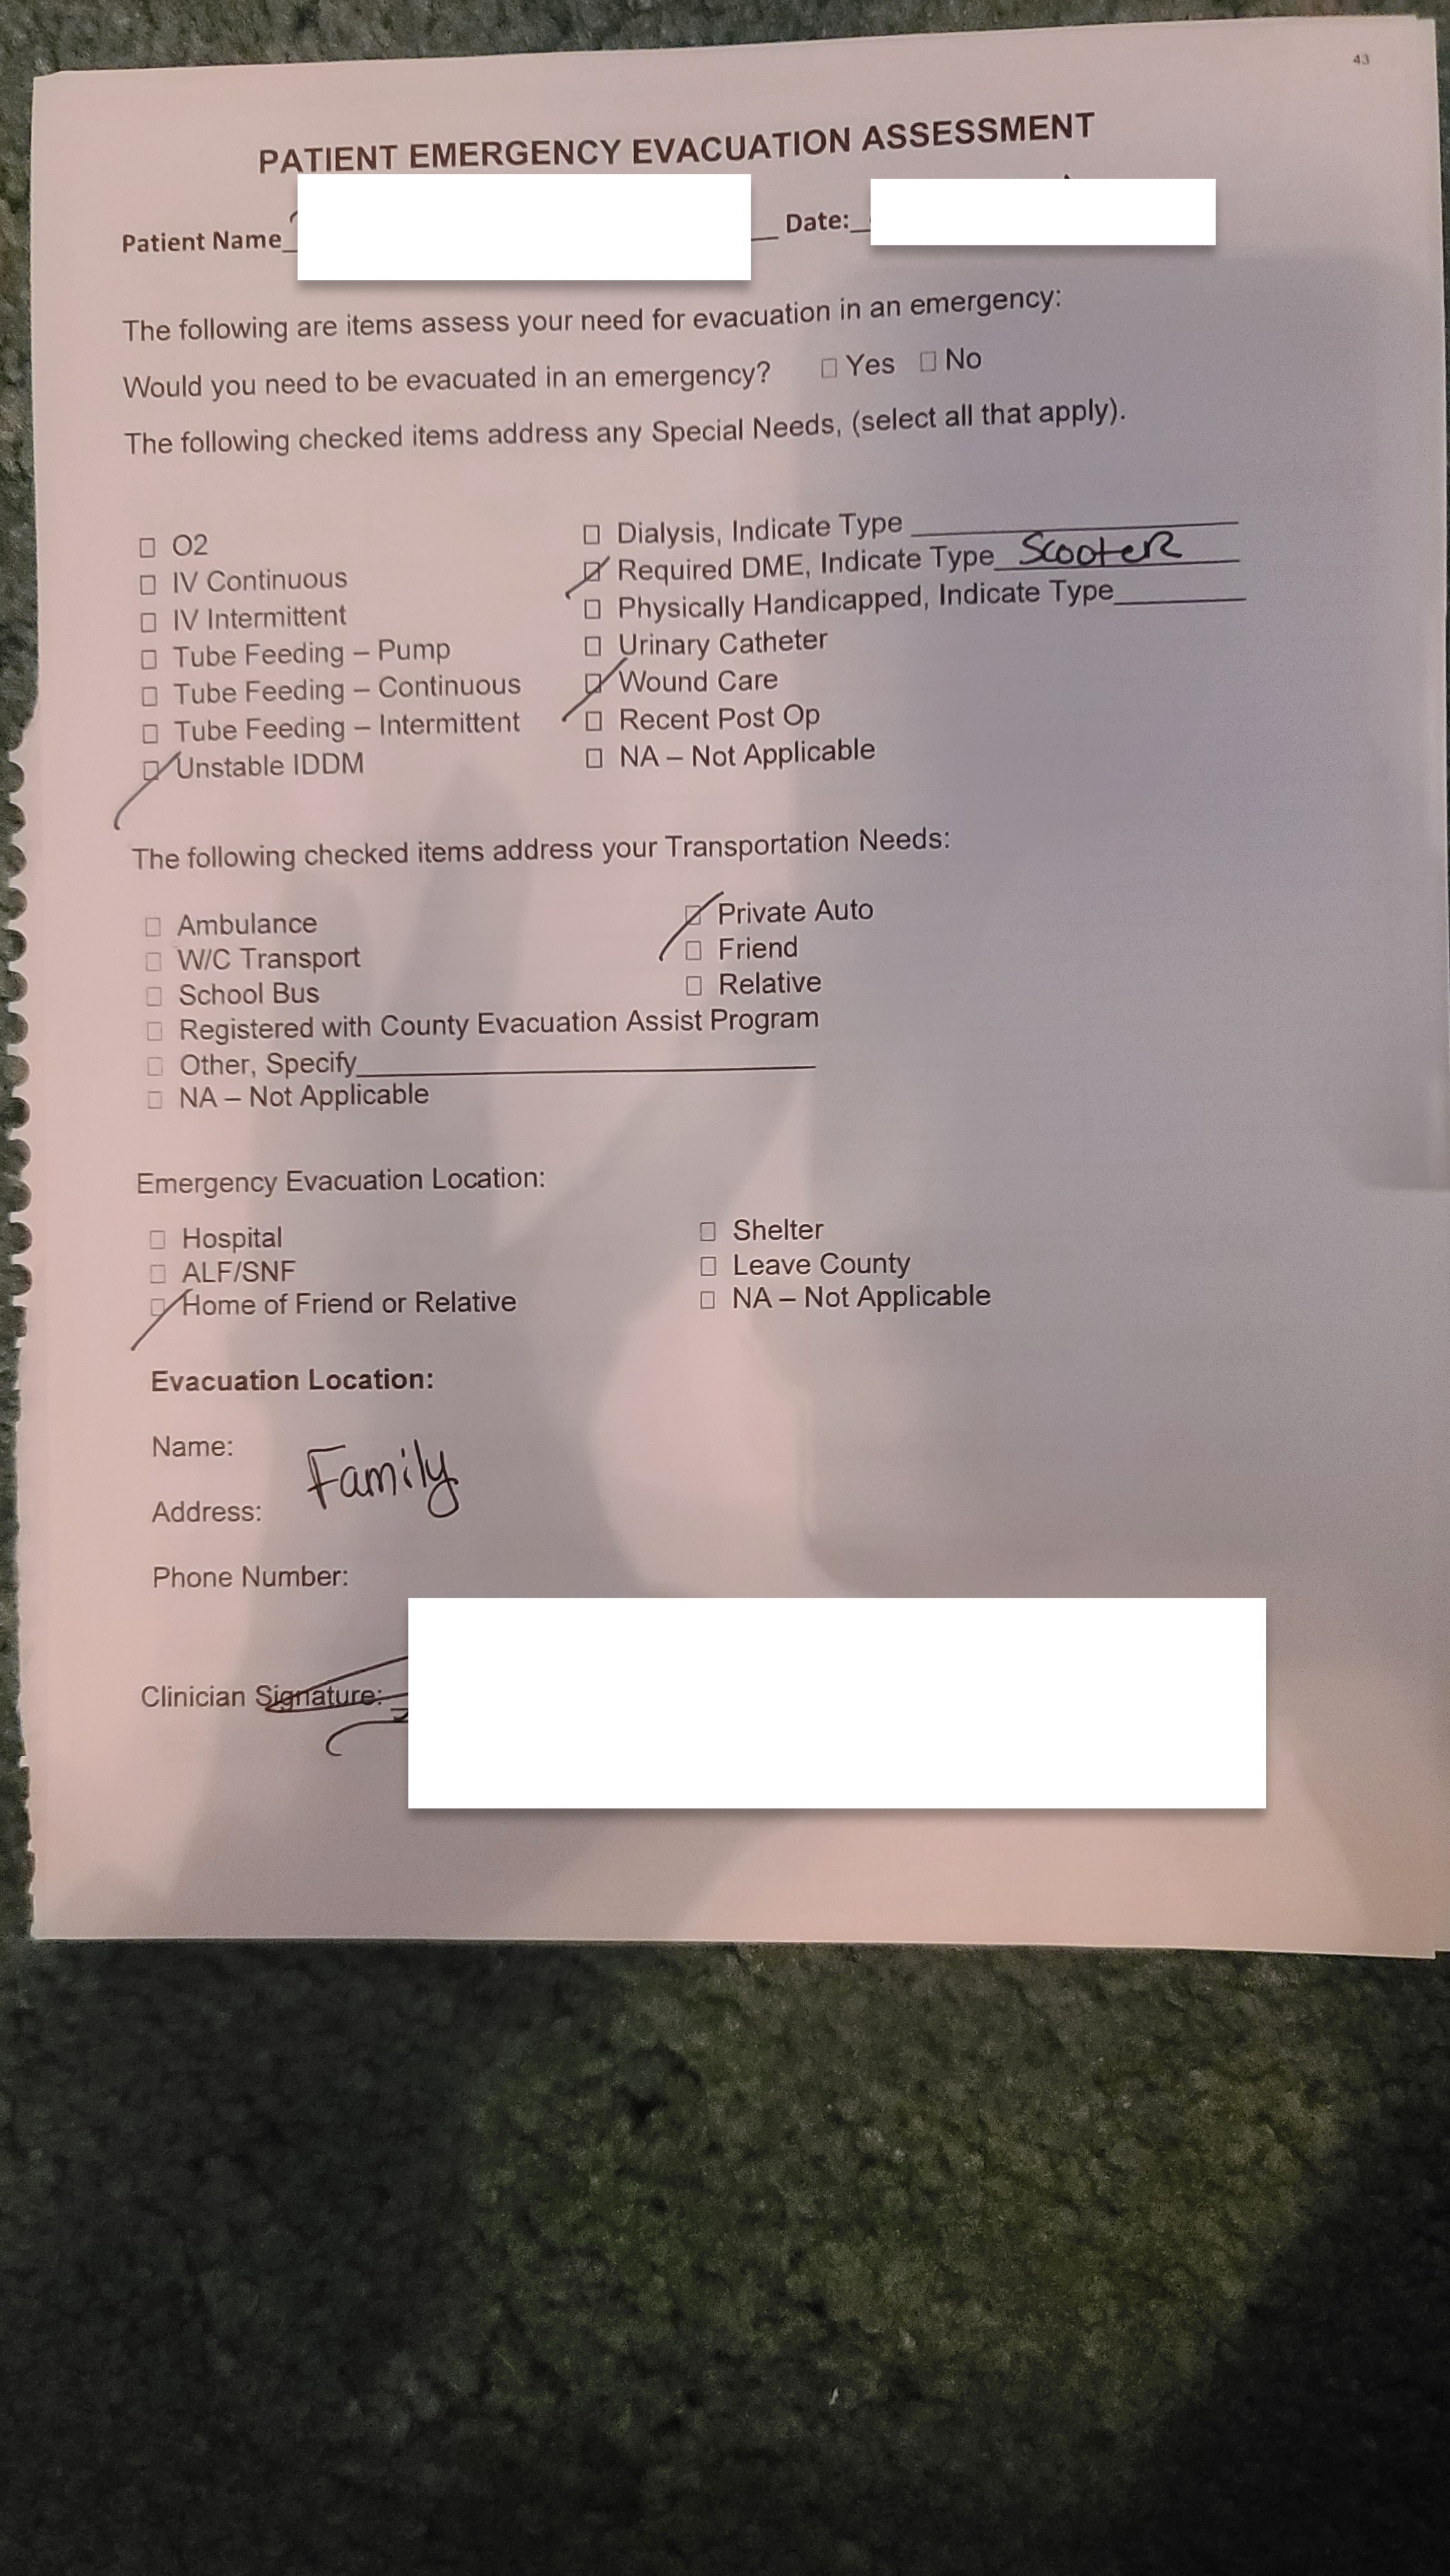 43
PATIENT EMERGENCY EVACUATION ASSESSMENT
Patient Name_ __ Date:_
The following are items assess your need for evacuation in an emergency:
Would you need to be evacuated in an emergency? ☐ Yes ☐ No
The following checked items address any Special Needs, (select all that apply).
☐ O2
☐ IV Continuous
☐ IV Intermittent
☐ Tube Feeding – Pump
☐ Tube Feeding – Continuous
☐ Tube Feeding – Intermittent
☑ Unstable IDDM
☐ Dialysis, Indicate Type ____________
☑ Required DME, Indicate Type Scooter
☐ Physically Handicapped, Indicate Type________
☐ Urinary Catheter
☑ Wound Care
☐ Recent Post Op
☐ NA – Not Applicable
The following checked items address your Transportation Needs:
☐ Ambulance
☐ W/C Transport
☐ School Bus
☐ Registered with County Evacuation Assist Program
☐ Other, Specify____________
☐ NA – Not Applicable
☑ Private Auto
☐ Friend
☐ Relative
Emergency Evacuation Location:
☐ Hospital
☐ ALF/SNF
☑ Home of Friend or Relative
☐ Shelter
☐ Leave County
☐ NA – Not Applicable
Evacuation Location:
Name:
Family
Address:
Phone Number:
Clinician Signature: